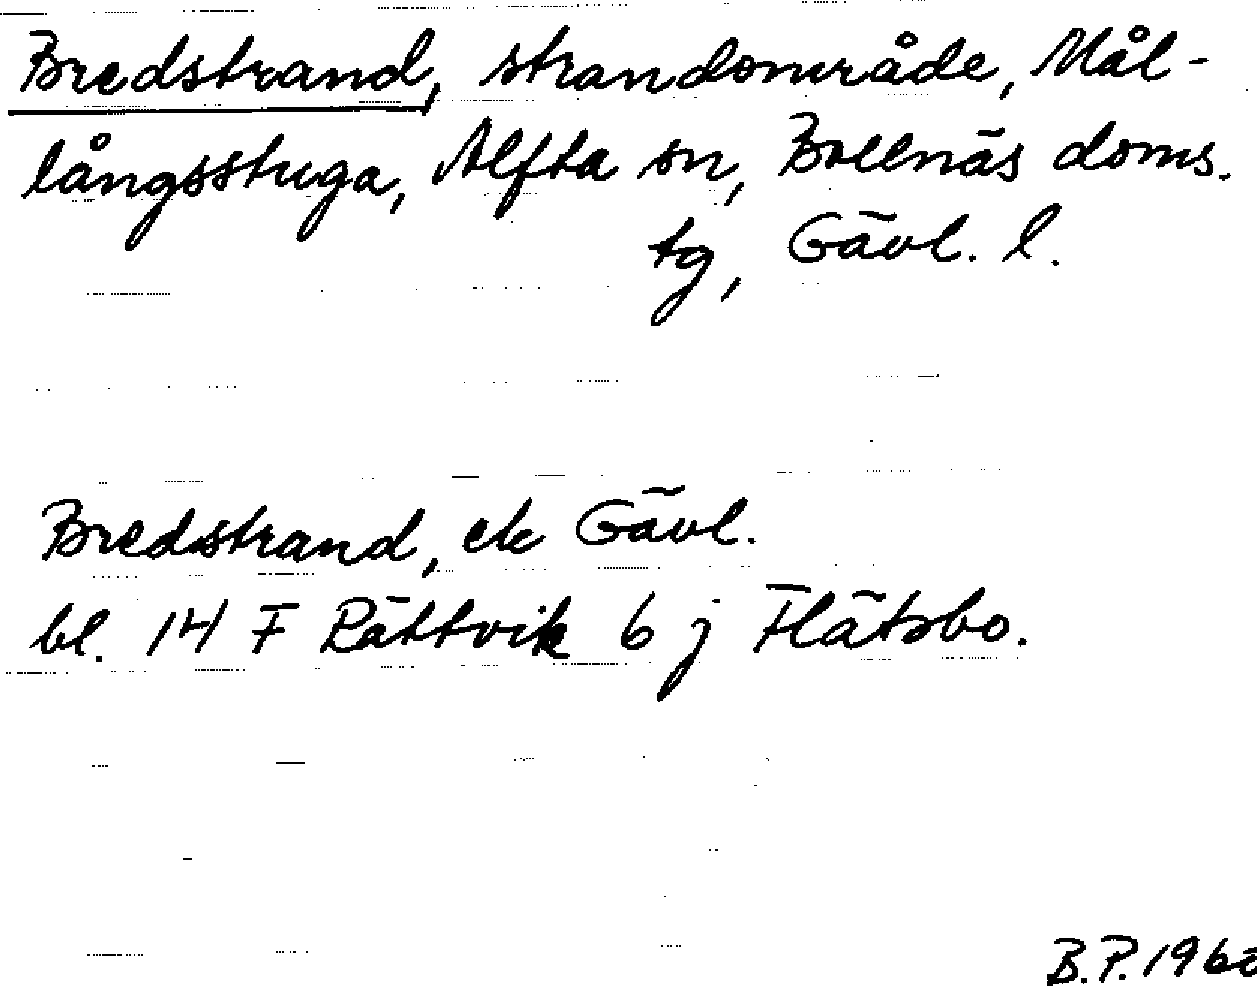 Bredstrand, strandområde, Mål-
långsstuga, Alfta sn, Bollnäs doms.
tg, Gävl. l.
Bredstrand, ek Gävl.
bl. 14 F Rättvik 6 j Flätsbo.
B.P. 1960